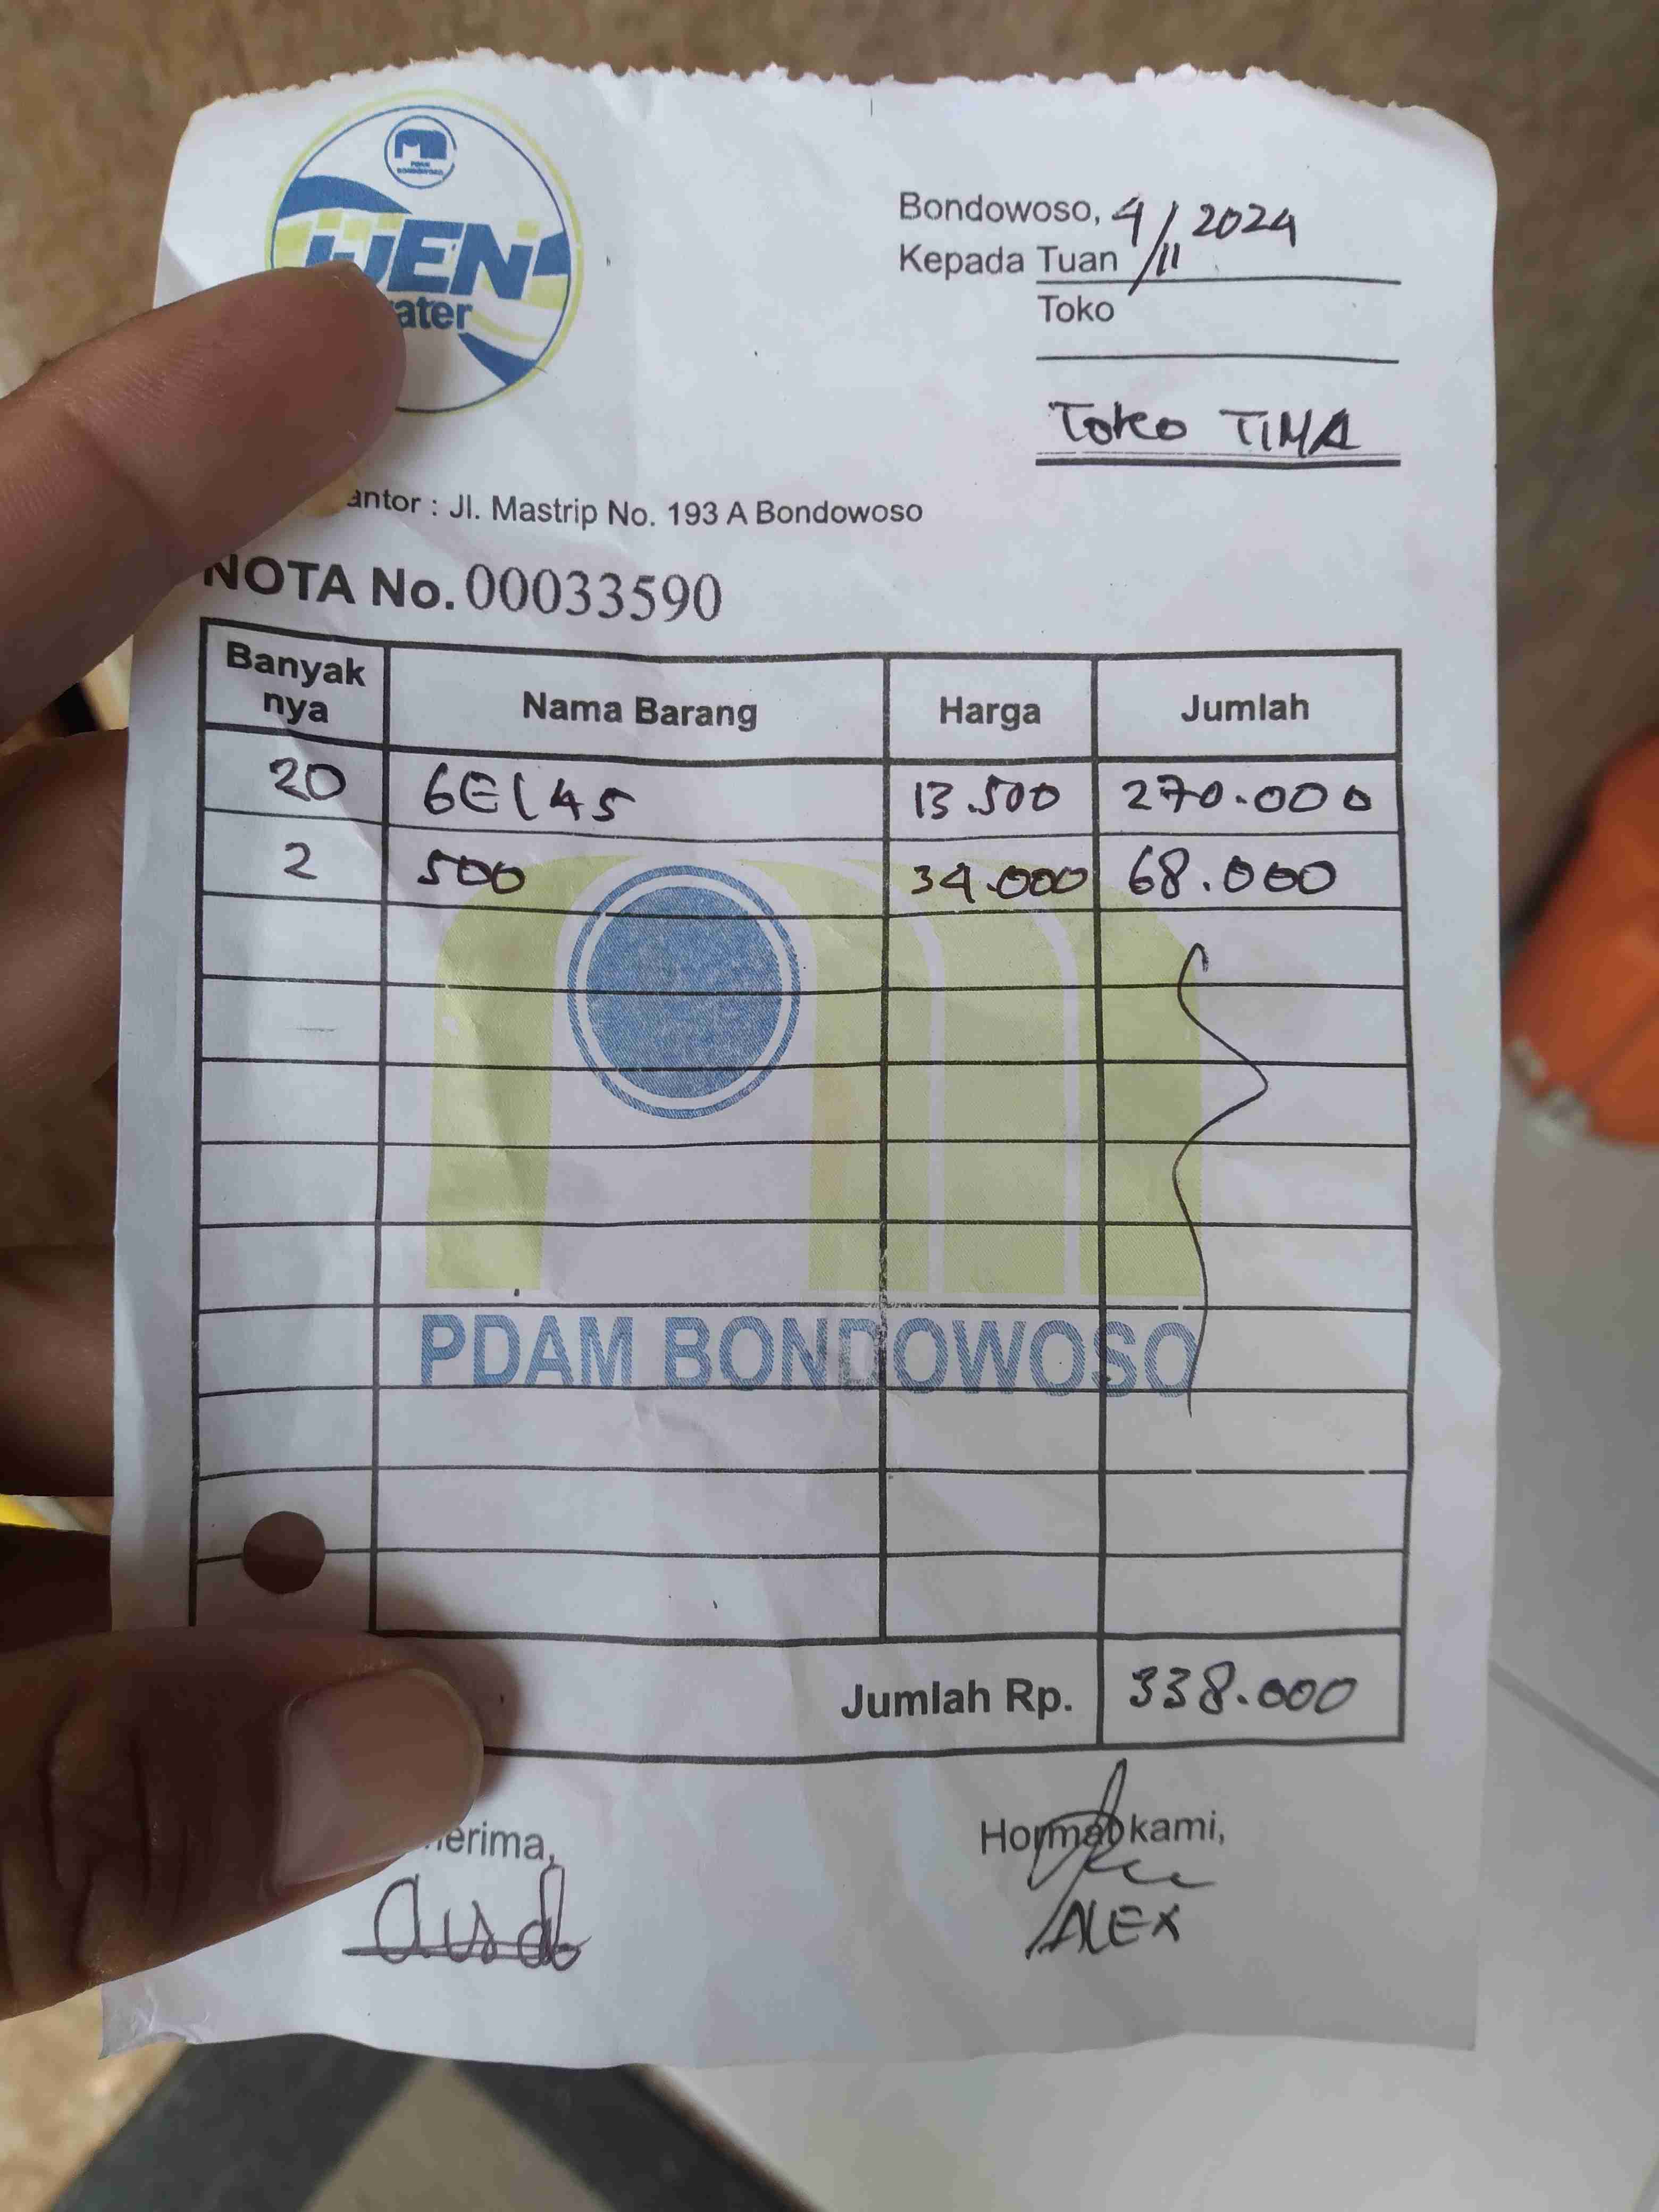 PDAM
BONDOWOSO
IJEN
ater
Bondowoso, 4/11 2024
Kepada Tuan
Toko
Toko TIMA
antor : Jl. Mastrip No. 193 A Bondowoso
NOTA No. 00033590
Banyak nya Nama Barang Harga Jumlah
20 GEL 45 13.500 270.000
2 500 34.000 68.000
PDAM BONDOWOSO
Jumlah Rp. 338.000
nerima, Hormat kami,
ALEX